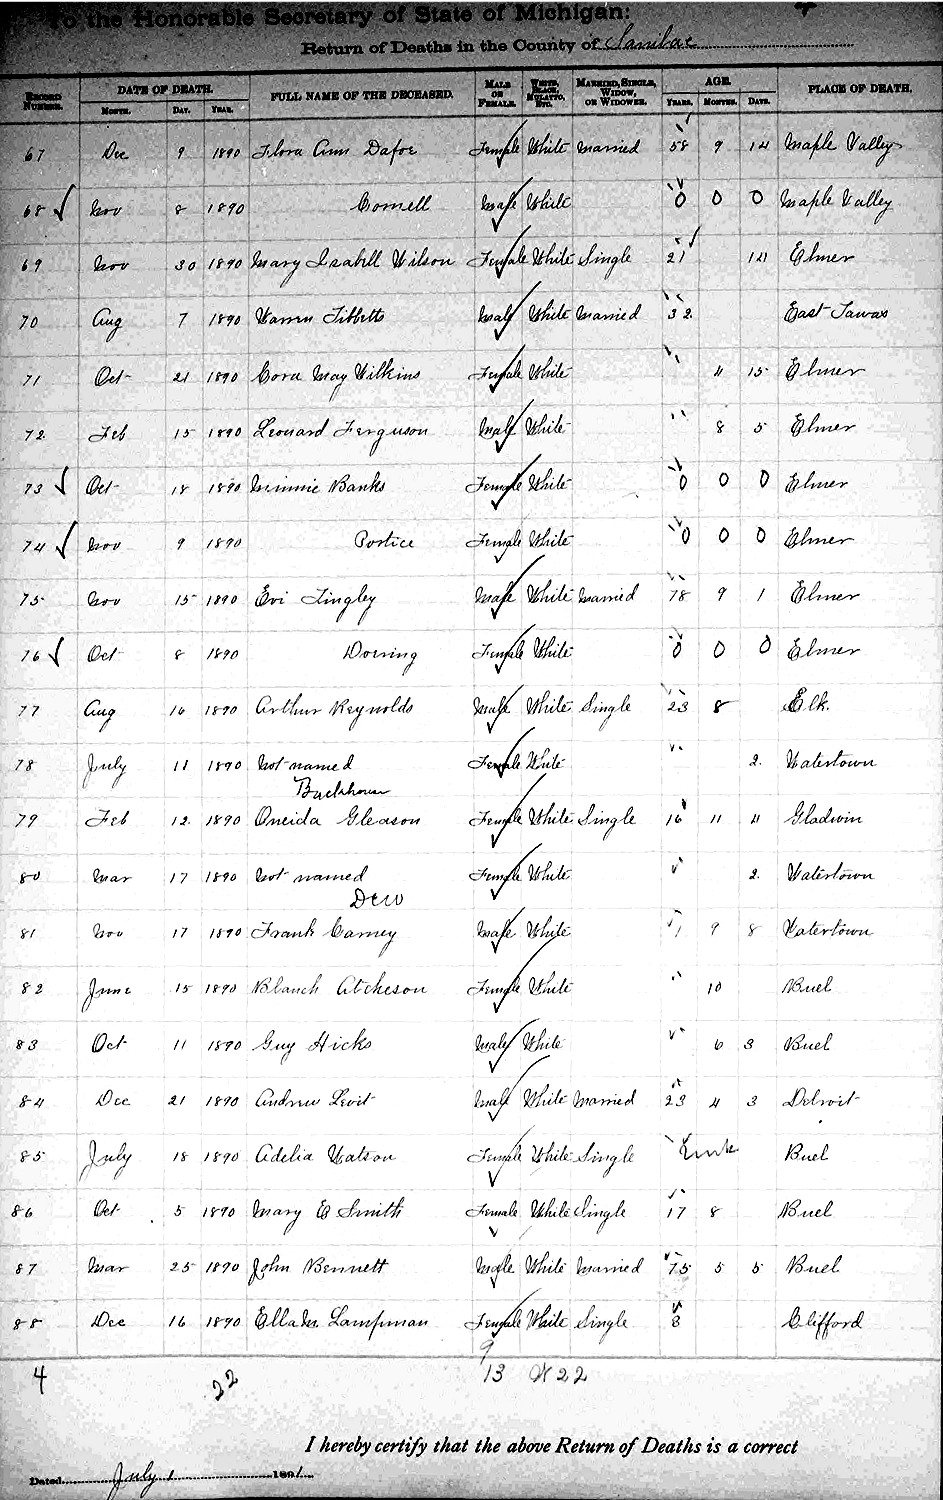 To the Honorable Secretary of State of Michigan:
Return of Deaths in the County of Sanilac
RECORD NUMBER. DATE OF DEATH. FULL NAME OF THE DECEASED. MALE OR FEMALE. WHITE, BLACK, MULATTO, ETC. MARRIED, SINGLE, WIDOW, OR WIDOWER. AGE. PLACE OF DEATH.
MONTH. DAY. YEAR. YEARS. MONTHS. DAYS.
67 Dec 9 1890 Flora Ann Dafoe Female White Married 58 9 14 Maple Valley
68 Nov 8 1890 Cornell Male White 0 0 0 Maple Valley
69 Nov 30 1890 Mary Isabell Wilson Female White Single 21 14 Elmer
70 Aug 7 1890 Warren Tibbetts Male White Married 32 East Tawas
71 Oct 21 1890 Cora May Wilkins Female White 11 15 Elmer
72 Feb 15 1890 Leonard Ferguson Male White 8 5 Elmer
73 Oct 18 1890 Minnie Banks Female White 0 0 0 Elmer
74 Nov 9 1890 Portice Female White 0 0 0 Elmer
75 Nov 15 1890 Evi Tingley Male White Married 78 9 1 Elmer
76 Oct 8 1890 Dorring Female White 0 0 0 Elmer
77 Aug 16 1890 Arthur Reynolds Male White Single 23 8 Elk.
78 July 11 1890 Not named Female White 2 Watertown
Backhouse
79 Feb 12 1890 Oneida Gleason Female White Single 16 11 11 Gladwin
80 Mar 17 1890 Not named Female White 2 Watertown
Dew
81 Nov 17 1890 Frank Carney Male White 1 9 8 Watertown
82 June 15 1890 Blanch Atcheson Female White 10 Buel
83 Oct 11 1890 Guy Hicks Male White 6 3 Buel
84 Dec 21 1890 Andrew Levit Male White Married 23 4 3 Detroit
85 July 18 1890 Adelia Watson Female White Single Unk Buel
86 Oct 5 1890 Mary E Smith Female White Single 17 8 Buel
87 Mar 25 1890 John Bennett Male White Married 75 5 5 Buel
88 Dec 16 1890 Ella M. Lampman Female White Single 8 Clifford
9
4 22 13 W 22
I hereby certify that the above Return of Deaths is a correct
Dated July 1 1891